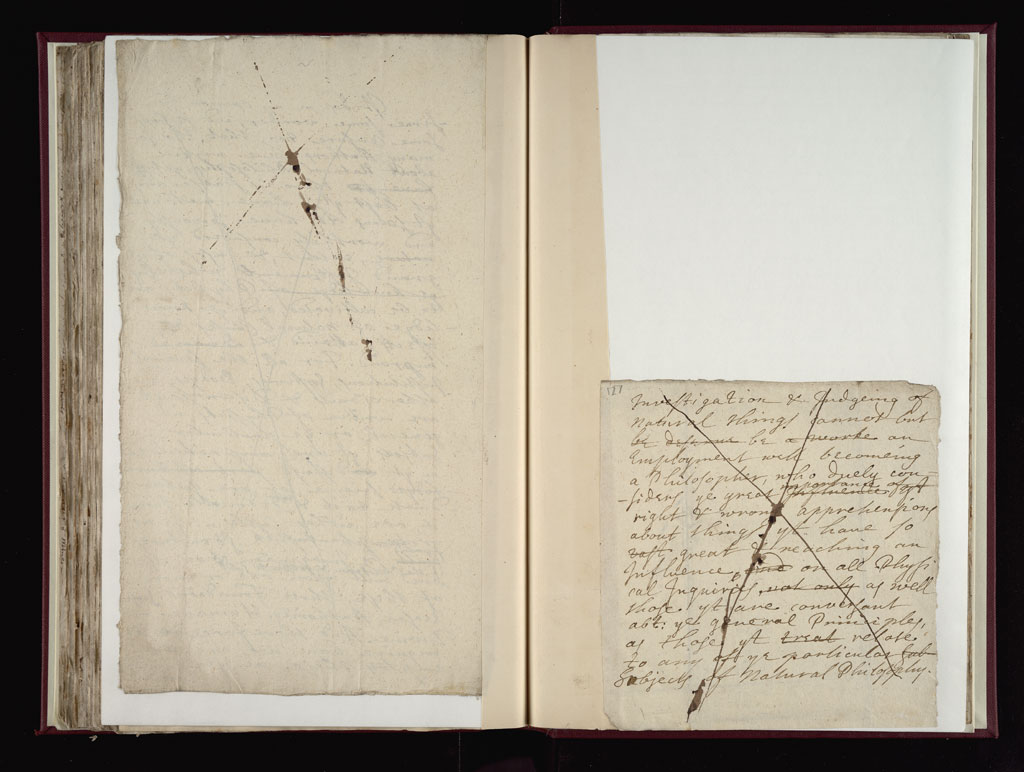 127
Investigation & Judgeing of
Natural things cannot but
be a worke an
Employment well becomeing
a Philosopher, who duely con-
-siders ye great importance of ye
influence
right & wrong apprehensions
about things yt have so
vast great & reaching an
Influence, on all Physi
cal Inquiries, not only as well
those yt are conversant
abt: ye general Principles,
as those yt treat relate
to any of ye particular Sub
Subjects of Natural Philosophy.